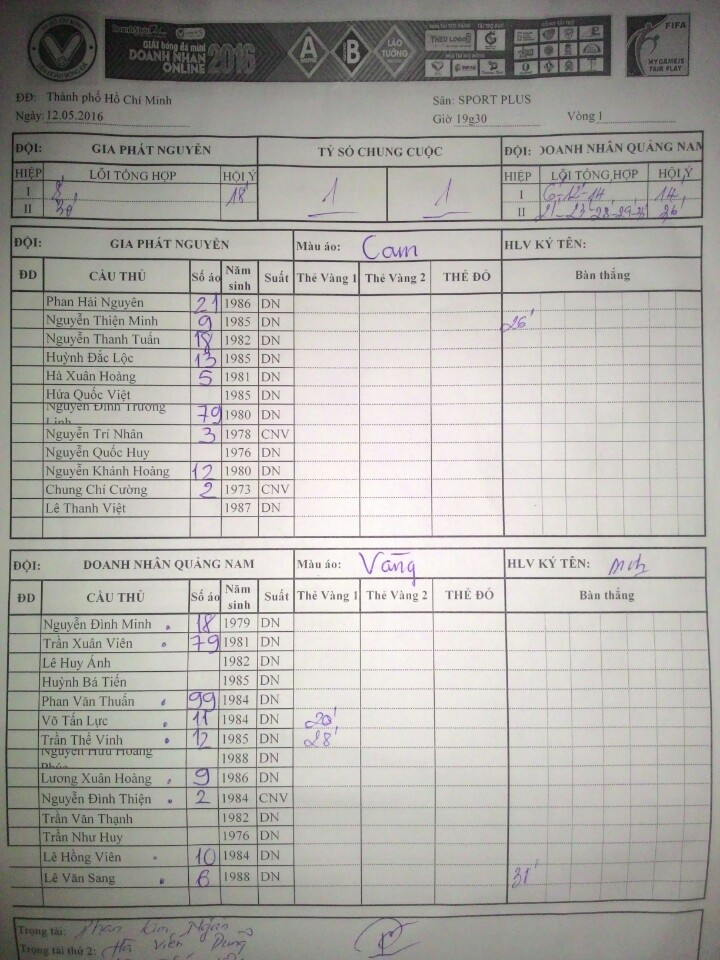 GIẢI bóng đá mini
DOANH NHÂN
ONLINE 2016
A B LÃO TƯỚNG
FIFA
MY GAME IS
FAIR PLAY
ĐĐ: Thành phố Hồ Chí Minh Sân: SPORT PLUS
Ngày: 12.05.2016 Giờ 19g30 Vòng 1
ĐỘI: GIA PHÁT NGUYỄN TỶ SỐ CHUNG CUỘC ĐỘI: DOANH NHÂN QUẢNG NAM
HIỆP LỖI TỔNG HỢP HỘI Ý HIỆP LỖI TỔNG HỢP HỘI Ý
I 8' 18' 1 1 I 6'-12'-14' 14'
II 30' II 21'-23'-28'-29'
ĐỘI: GIA PHÁT NGUYỄN Màu áo: Cam HLV KÝ TÊN:
ĐD CẦU THỦ Số áo Năm sinh Suất Thẻ Vàng 1 Thẻ Vàng 2 THẺ ĐỎ Bàn thắng
Phan Hải Nguyên 21 1986 DN
Nguyễn Thiện Minh 9 1985 DN 26'
Nguyễn Thanh Tuấn 18 1982 DN
Huỳnh Đắc Lộc 13 1985 DN
Hà Xuân Hoàng 5 1981 DN
Hứa Quốc Việt 1985 DN
Nguyễn Đình Trường Linh 79 1980 DN
Nguyễn Trí Nhân 3 1978 CNV
Nguyễn Quốc Huy 1976 DN
Nguyễn Khánh Hoàng 12 1980 DN
Chung Chí Cường 2 1973 CNV
Lê Thanh Việt 1987 DN
ĐỘI: DOANH NHÂN QUẢNG NAM Màu áo: Vàng HLV KÝ TÊN:
ĐD CẦU THỦ Số áo Năm sinh Suất Thẻ Vàng 1 Thẻ Vàng 2 THẺ ĐỎ Bàn thắng
Nguyễn Đình Minh 18 1979 DN
Trần Xuân Viên 79 1981 DN
Lê Huy Ánh 1982 DN
Huỳnh Bá Tiến 1985 DN
Phan Văn Thuấn 99 1984 DN
Võ Tấn Lực 11 1984 DN 20'
Trần Thế Vinh 12 1985 DN 28'
Nguyễn Hữu Hoàng Phúc 1988 DN
Lương Xuân Hoàng 9 1986 DN
Nguyễn Đình Thiện 2 1984 CNV
Trần Văn Thạnh 1982 DN
Trần Như Huy 1976 DN
Lê Hồng Viên 10 1984 DN
Lê Văn Sang 6 1988 DN 31'
Trọng tài: Phan Kim Ngân
Trọng tài thứ 2: Hà Viên Dung